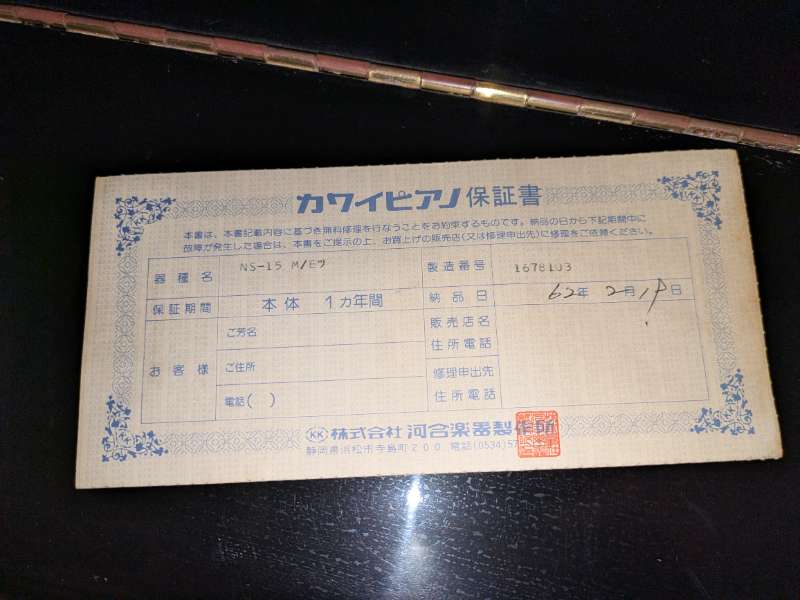 カワイピアノ 保証書
本書は、本書記載内容に基づき無料修理を行なうことをお約束するものです。納品の日から下記期間中に
故障が発生した場合は、本書をご提示の上、お買上げの販売店(又は修理申出先)に修理をご依頼ください。
器種名 NS-15 M/Eツ 製造番号 1678103
保証期間 本体 1カ年間 納品日 62年 2月 日
お客様
ご芳名
ご住所
電話( )
販売店名
住所電話
修理申出先
住所電話
KK 株式会社 河合楽器製作所
静岡県浜松市寺島町200 電話(0534)57